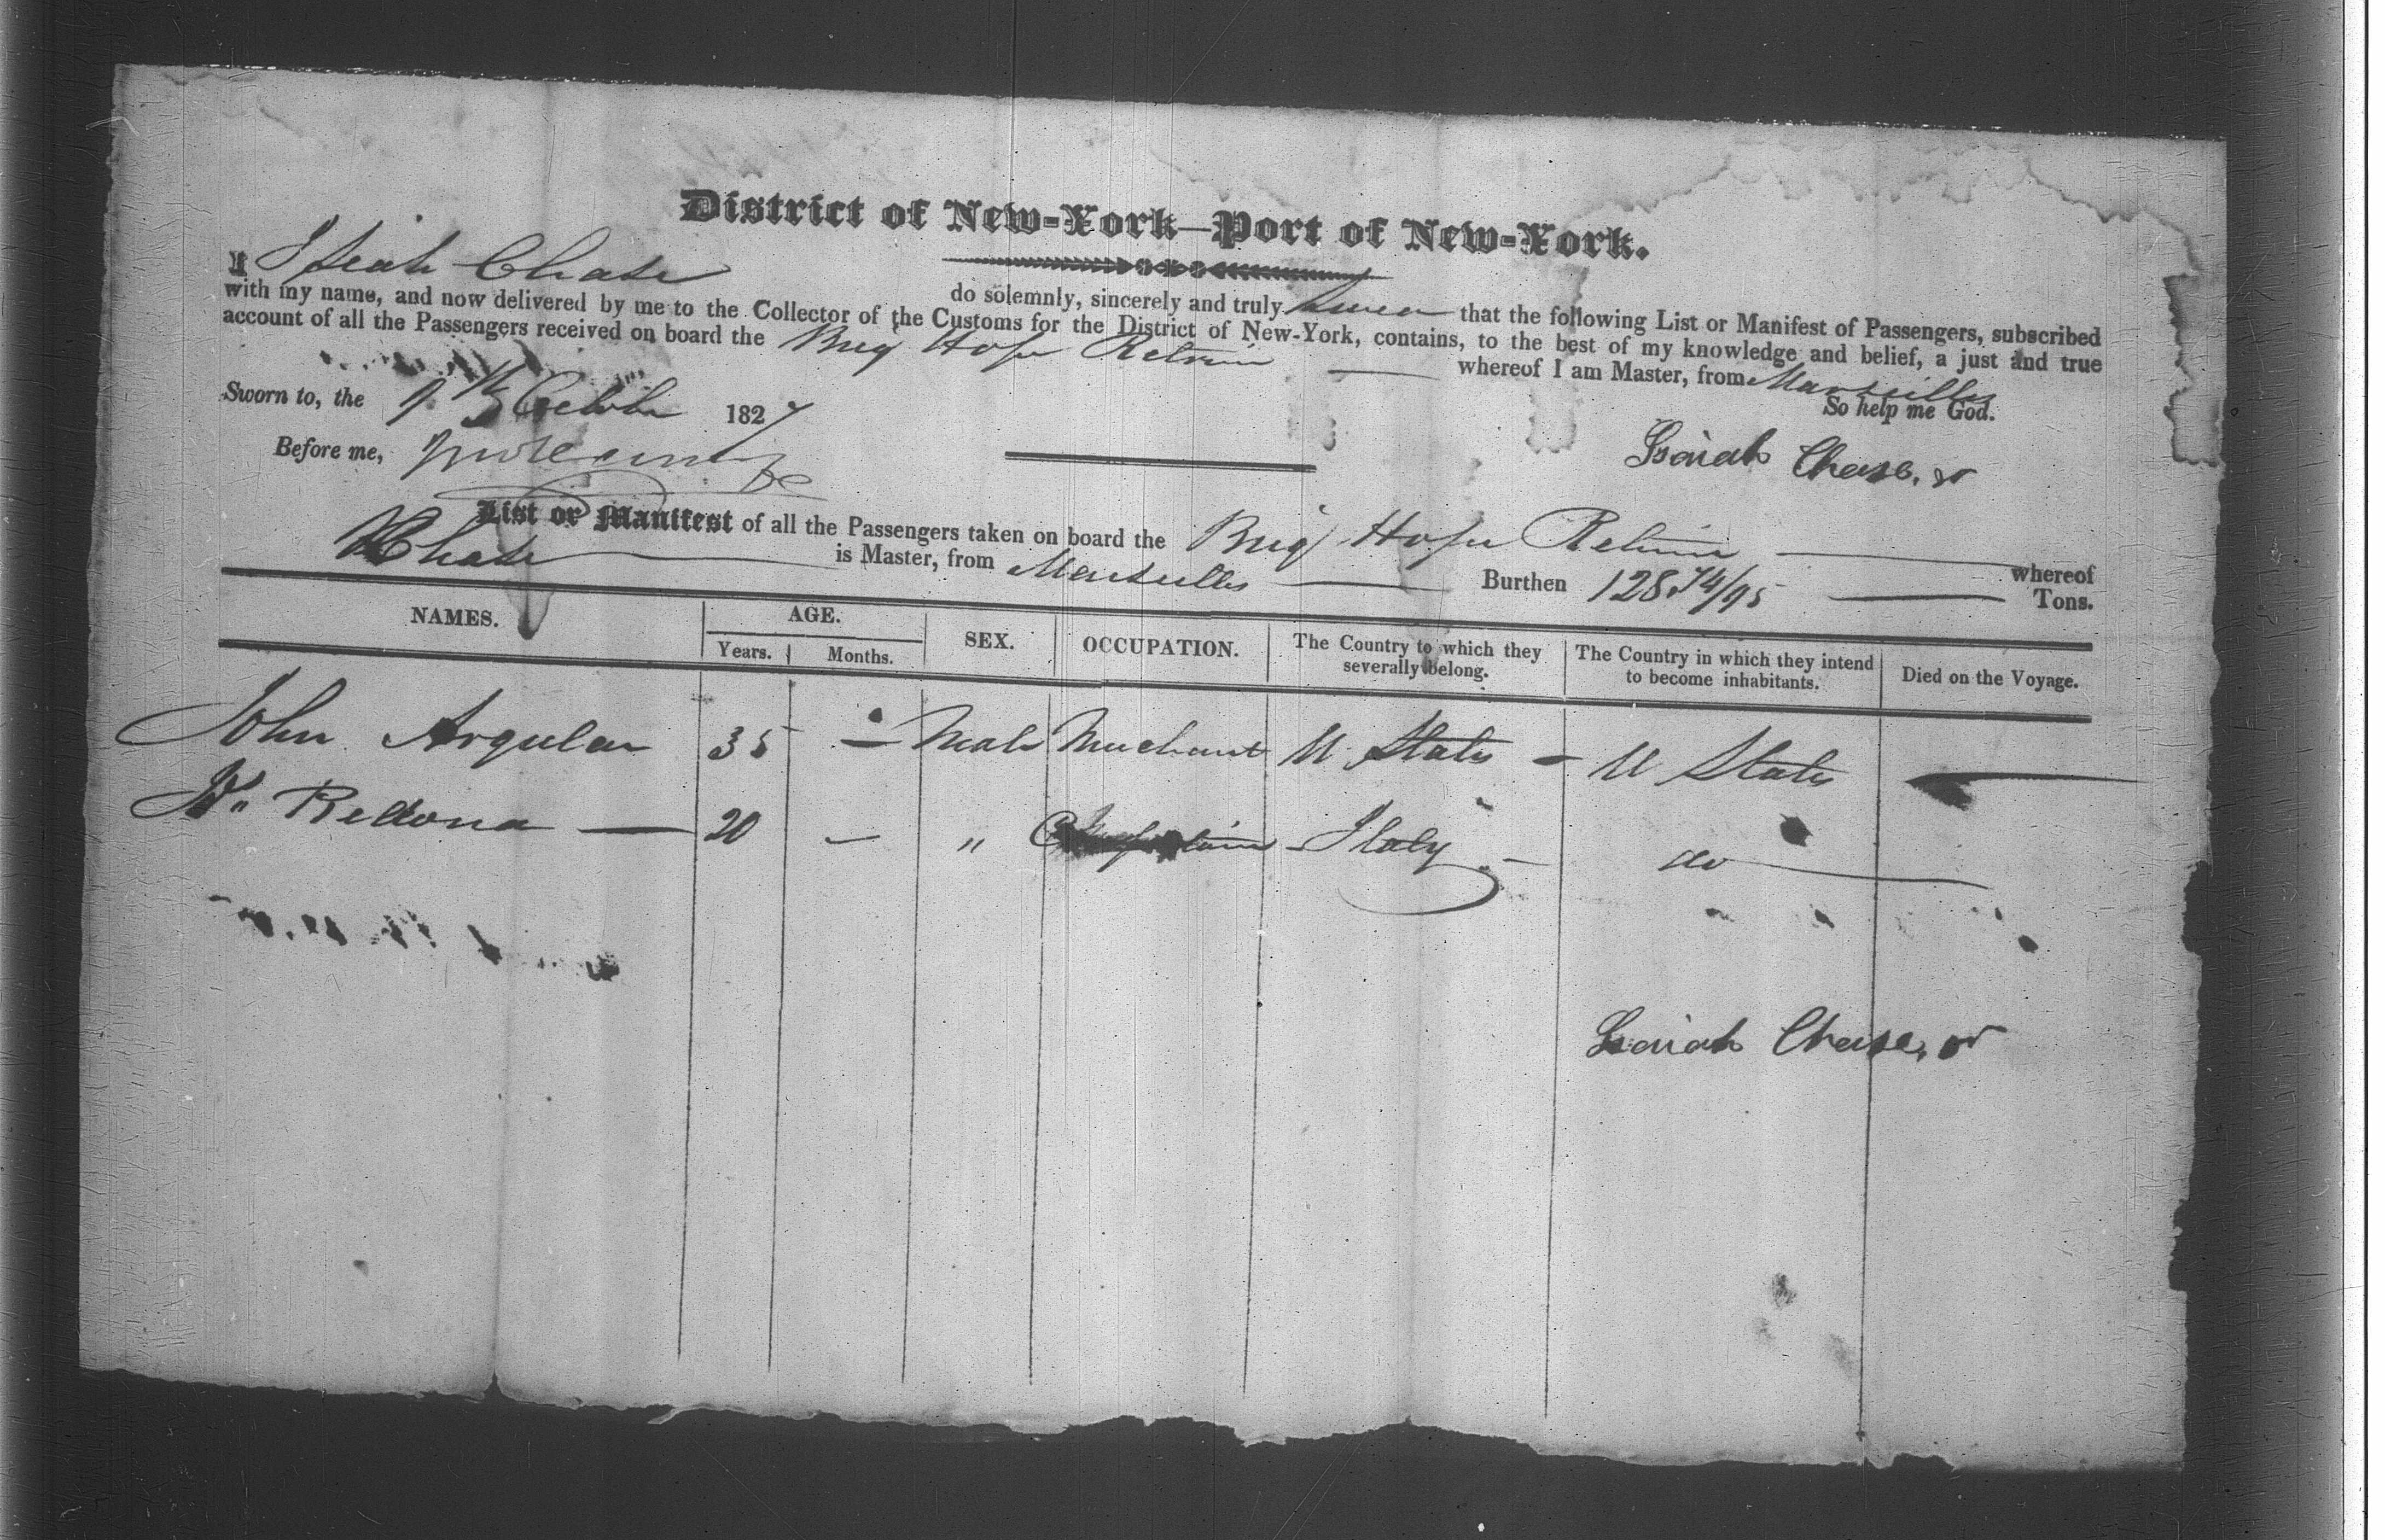 District of New-York—Port of New-York.
I Isaiah Chase do solemnly, sincerely and truly swear that the following List or Manifest of Passengers, subscribed
with my name, and now delivered by me to the Collector of the Customs for the District of New-York, contains, to the best of my knowledge and belief, a just and true
account of all the Passengers received on board the Brig Hope Return whereof I am Master, from Marseilles
So help me God.
Sworn to, the 9th October 1827
Isaiah Chase, Jr
Before me,
List or Manifest of all the Passengers taken on board the Brig Hope Return whereof
Chase is Master, from Marseilles Burthen 128 74/95 Tons.
NAMES. AGE. SEX. OCCUPATION. The Country to which they severally belong. The Country in which they intend to become inhabitants. Died on the Voyage.
Years. Months.
John Argular 35 — Male Merchant U States — U States
Redona — 20 — " — Italy — do
Isaiah Chase, Jr